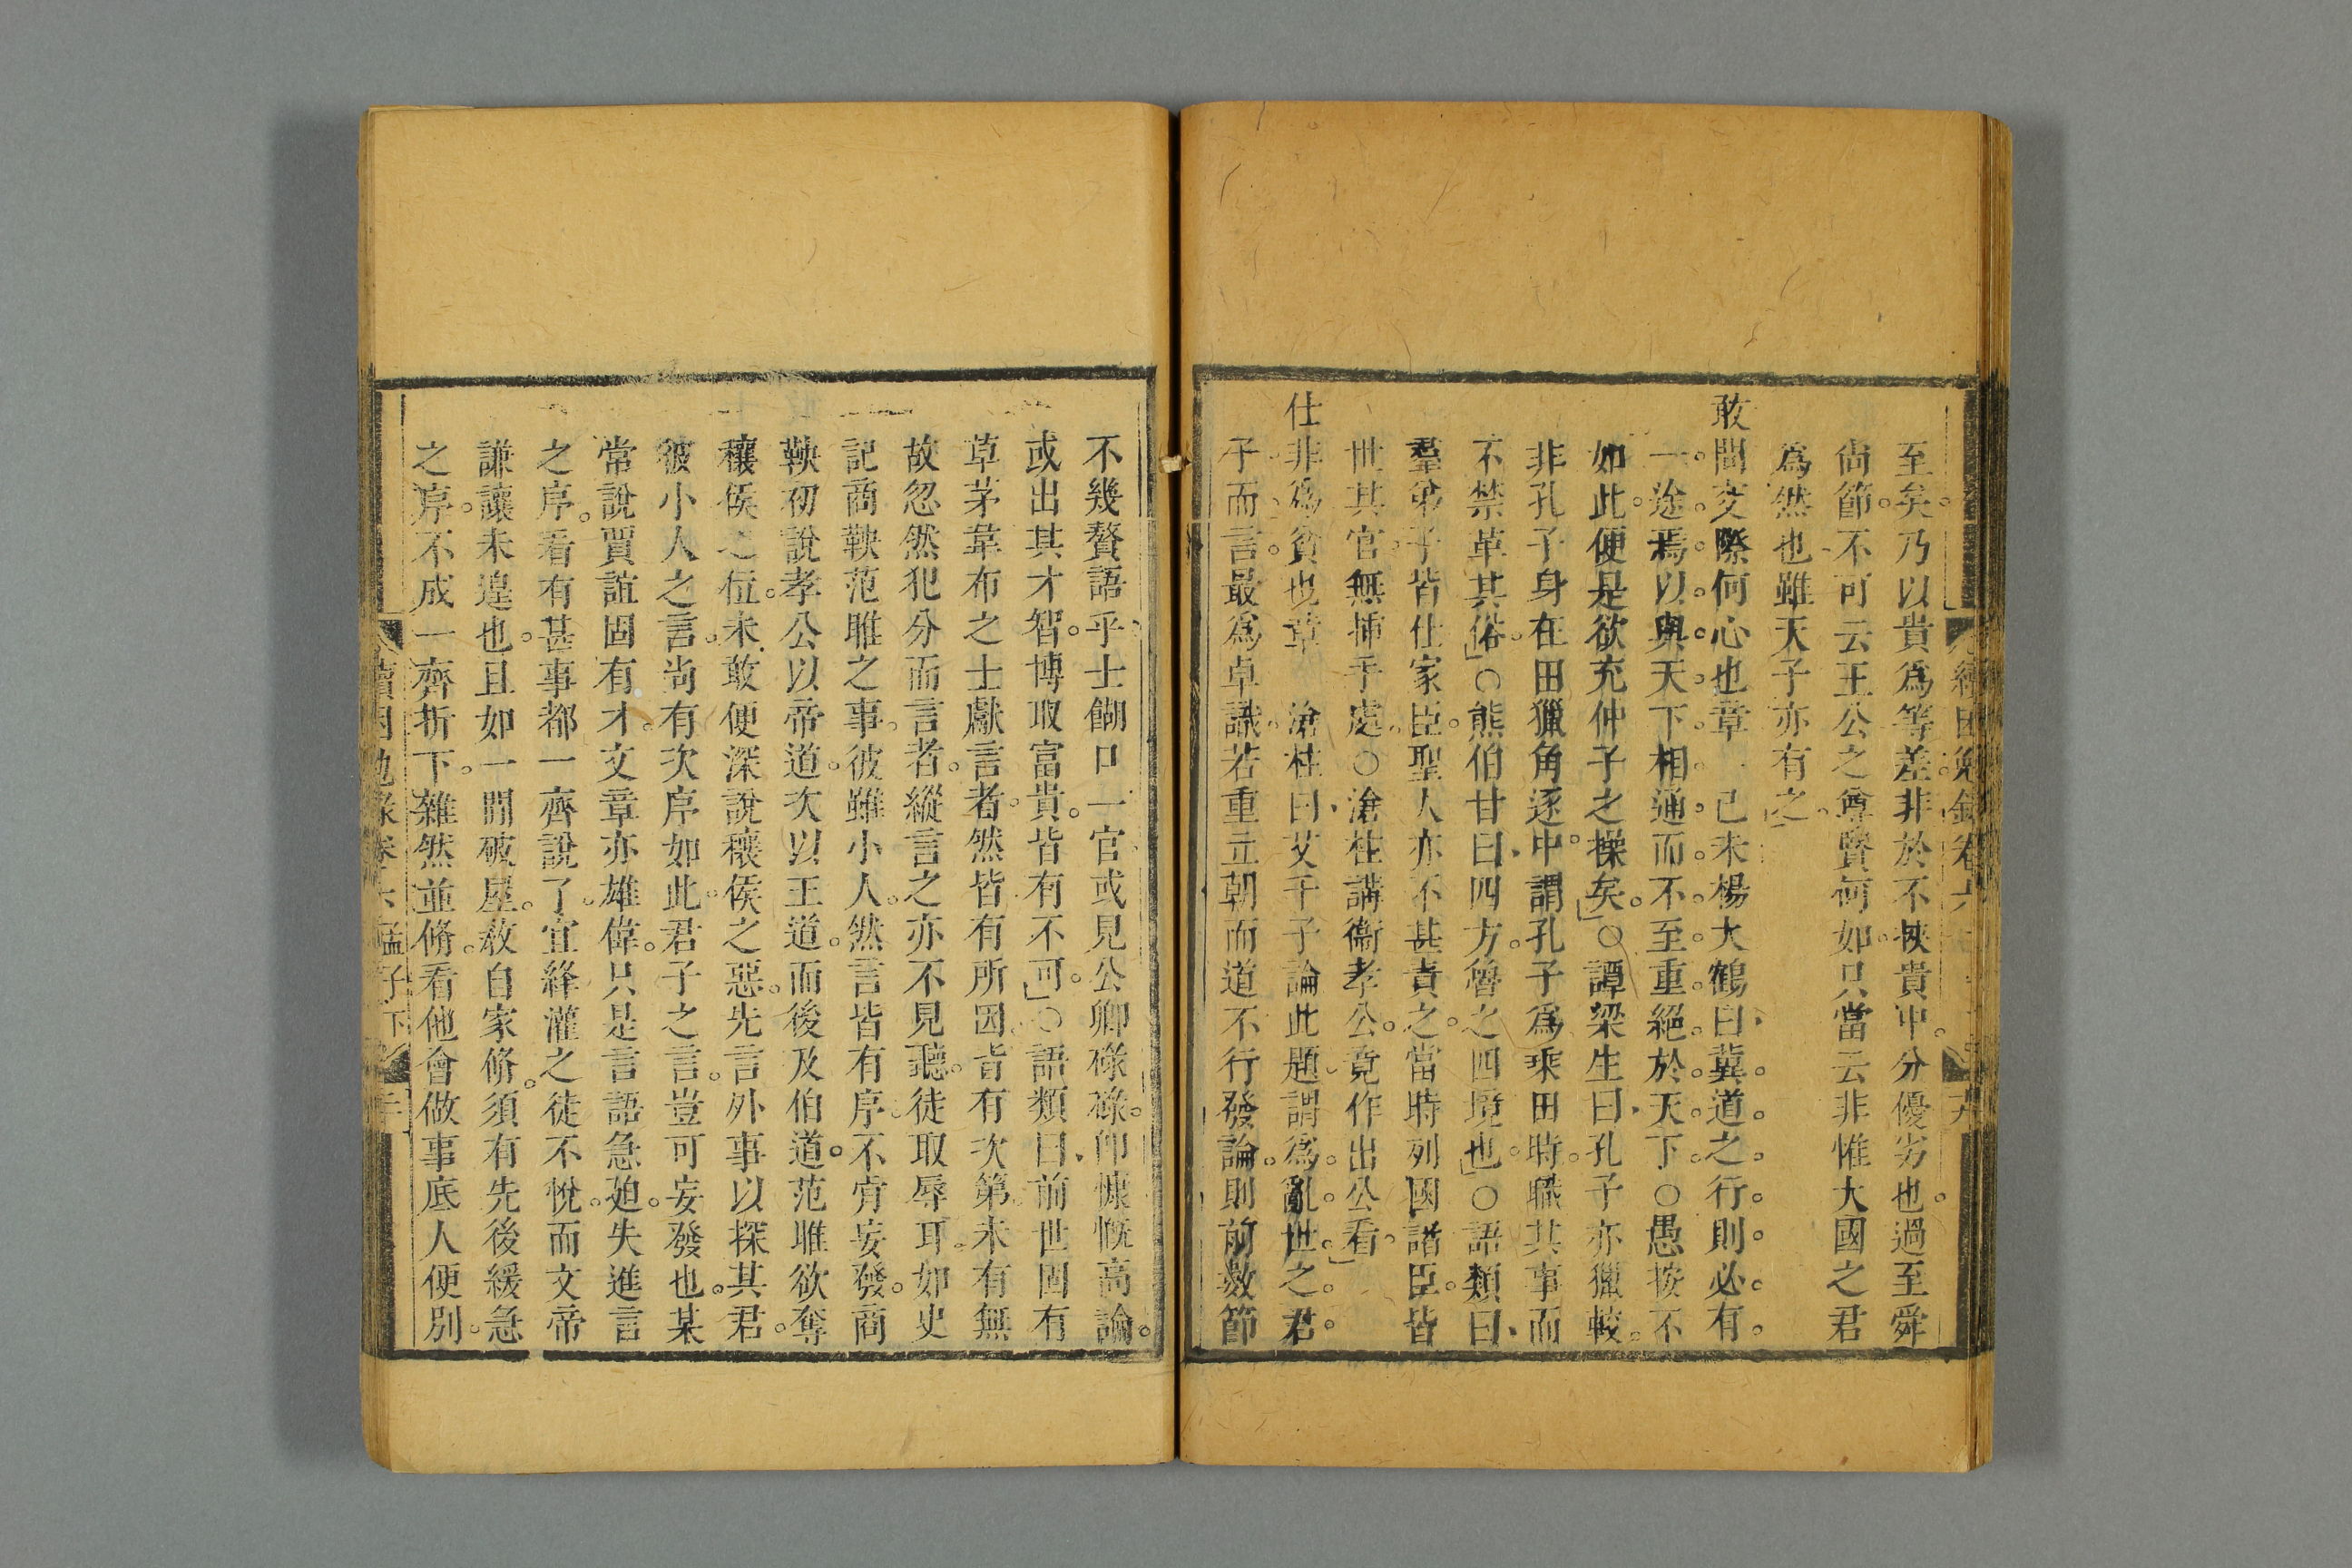 至矣乃以貴爲等差非於不挾貴中分優劣也過至舜
尙節不可云王公之尊賢何如只當云非惟大國之君
爲然也雖天子亦有之
敢問交際何心也章　己未楊大鶴曰冀道之行則必有
一途焉以與天下相通而不至重絕於天下○愚按不
如此便是欲充仲子之操矣○譚梁生曰孔子亦獵較
非孔子身在田獵角逐中謂孔子爲乘田時職其事而
不禁革其俗○熊伯甘曰四方魯之四境也○語類曰
羣弟子皆仕家臣聖人亦不甚責之當時列國諸臣皆
世其官無插手處○滄柱講衞孝公竟作出公看
仕非爲貧也章　滄柱曰艾千子論此題謂爲亂世之君
子而言最爲卓識若重立朝而道不行發論則前數節
不幾贅語乎士餬口一官或見公卿碌碌仰慷慨高論
或出其才智博取富貴皆有不可○語類曰前世固有
草茅韋布之士獻言者然皆有所因皆有次第未有無
故忽然犯分而言者縱言之亦不見聽徒取辱耳如史
記商鞅范睢之事彼雖小人然言皆有序不肯妄發商
鞅初說孝公以帝道次以王道而後及伯道范睢欲奪
穰侯之位未敢便深說穰侯之惡先言外事以探其君
彼小人之言尙有次序如此君子之言豈可妄發也某
常說賈誼固有才文章亦雄偉只是言語急迫失進言
之序看有甚事都一齊說了宜絳灌之徒不悅而文帝
謙讓未遑也且如一間破屋教自家脩須有先後緩急
之序不成一齊拆下雜然並脩看他會做事底人便別
續困勉錄卷六孟子下